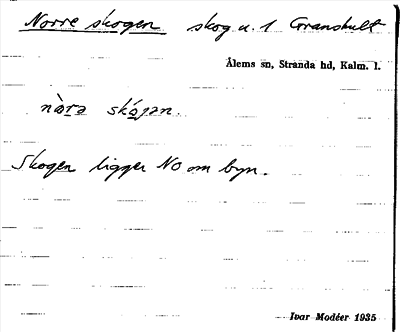 Norre skogen skog u. 1 Granshult
Ålems sn, Stranda hd, Kalm. l.
nò̱rə skó̱gən.
Skogen ligger NO om byn.
Ivar Modéer 1935